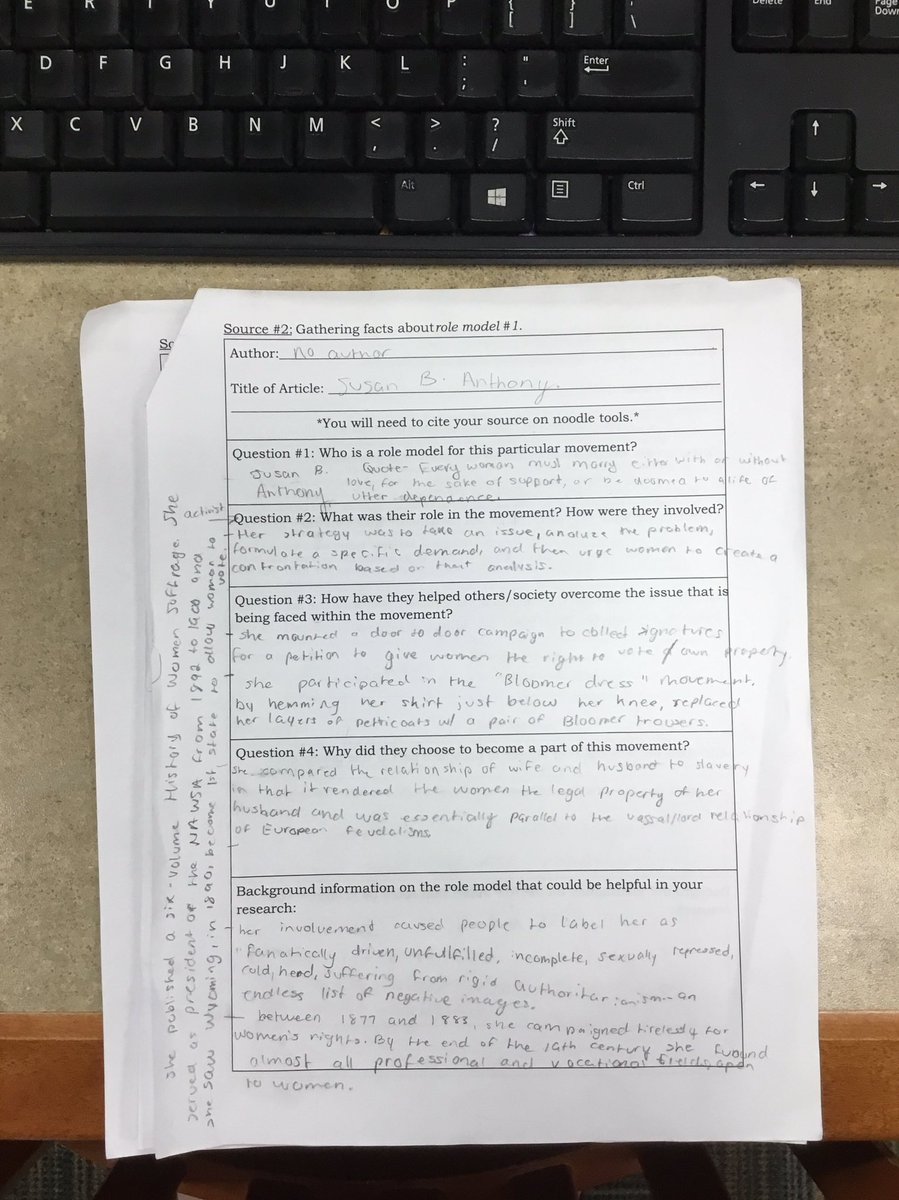 E R T Y U I O P { [ } ] | \ Delete End Page Down
D F G H J K L : ; " ' Enter
X C V B N M < , > . ? / Shift
Alt Ctrl
Source #2: Gathering facts about role model #1.
Author: no author
Title of Article: Susan B. Anthony.
*You will need to cite your source on noodle tools.*
Question #1: Who is a role model for this particular movement?
Susan B. Quote- Every woman must marry either with or without
Anthony love, for the sake of support, or be doomed to a life of
utter dependence.
activist
Question #2: What was their role in the movement? How were they involved?
- Her strategy was to take an issue, analuze the problem,
formulate a specific demand, and then urge women to create a
confrontation based on that analysis.
Question #3: How have they helped others/society overcome the issue that is
being faced within the movement?
- she mounted a door to door campaign to collect signatures
for a petition to give women the right to vote / own property.
- she participated in the "Bloomer dress" movement,
by hemming her shirt just below her knee, replaced
her layers of petticoats w/ a pair of Bloomer trousers.
Question #4: Why did they choose to become a part of this movement?
she compared the relationship of wife and husband to slavery
in that it rendered the women the legal property of her
husband and was essentially parallel to the vassal/lord relationship
of European feudalisms
Background information on the role model that could be helpful in your
research:
- her involvement caused people to label her as
"fanatically driven, unfulfilled, incomplete, sexually repressed,
cold, hend, suffering from rigid authoritarianism-an
endless list of negative images.
- between 1877 and 1883, she campaigned tirelessly for
women's rights. By the end of the 19th century she fuound
almost all professional and vocational fields open
to women.
she published a six-volume History of Women Suffrage. She
served as president of the NAWSA from 1892 to 1900 and
she saw Wyoming, in 1890, become 1st state to allow women to
vote.